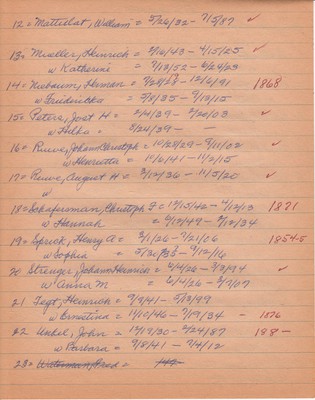 12 = Mattiebat, William = 5/26/32 - 7/5/87 ✓
13 = Mueller, Heinrich = 2/16/43 - 4/15/25 ✓
w Katherine = 7/13/52 - 6/24/23
14 = Niebaum, Herman = 7/28/28 - 12/6/91 1868
w Fredericka = 5/8/35 - 9/13/15
15 = Peters, Joest H = 2/4/29 - 2/20/03 ✓
w Helka = 3/24/39 - —
16 = Ruwe, Johann Christoph = 10/28/29 - 9/11/02 ✓
w Henrietta = 10/6/41 - 11/2/15
17 = Ruwe, August H = 3/12/36 - 11/5/20 ✓
w
18 = Schafersman, Christoph F = 11/15/42 - 4/12/13 1871
w Hannah = 2/12/49 - 2/12/34
19 = Sprick, Henry A = 3/1/26 - 7/21/06 1854-5
w Sophia = 5/30/35 - 9/12/16
20 Strenger, Johann Heinrich = 5/4/26 - 3/3/94 ✓
w Anna M = 6/4/26 - 3/7/07
21 Tegt, Heinrich = 7/9/41 - 5/13/99
w Ernestina = 11/10/46 - 7/19/34 - 1876
22 Unkel, John = 12/19/30 - 2/24/87 188-
w Barbara = 7/8/41 - 7/4/12
23 = Waterman, Fred =